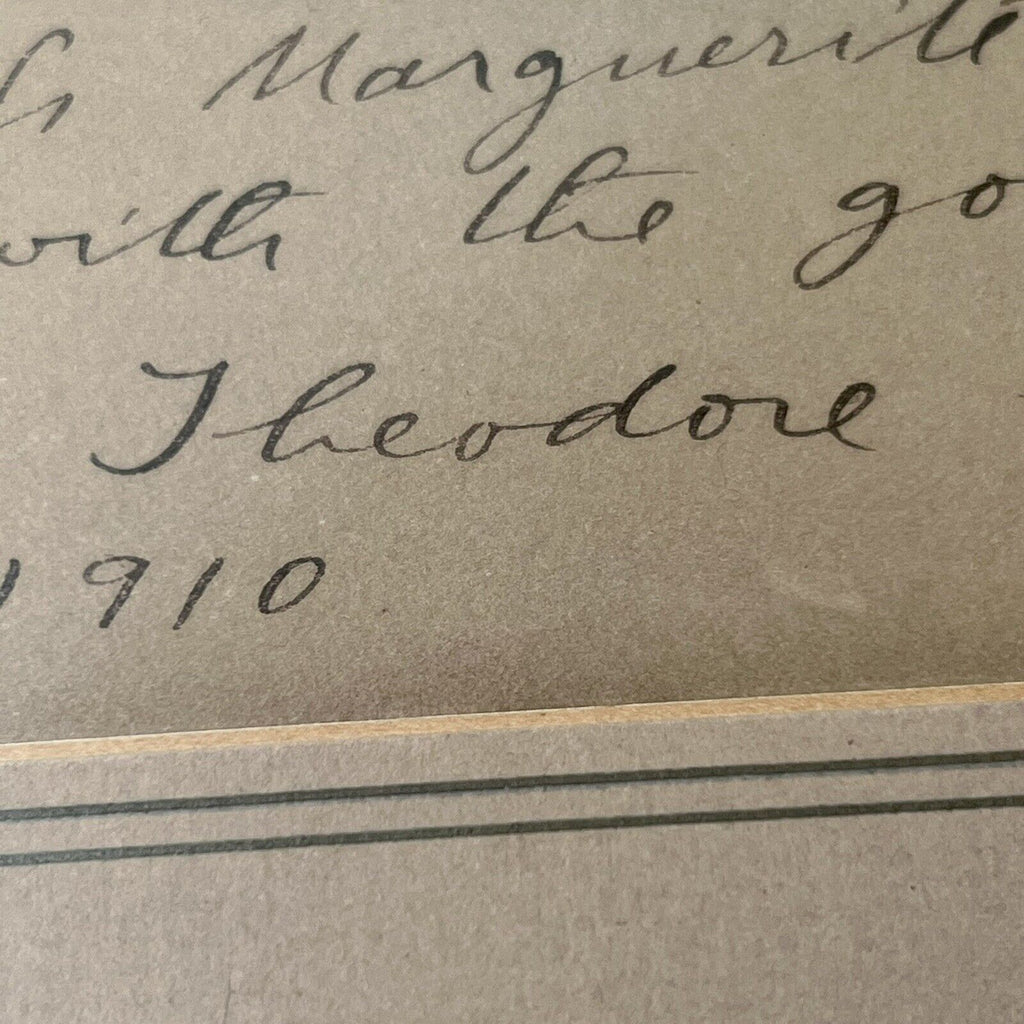 Marguerite
with the go
Theodore
1910